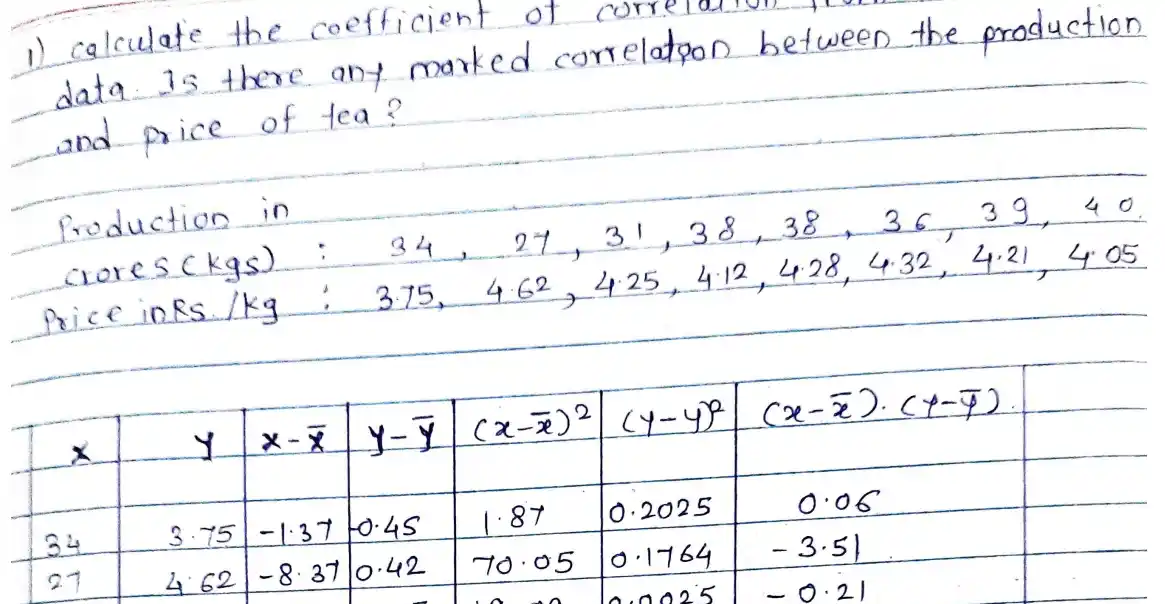 1) calculate the coefficient of correlation
data. Is there any marked correlation between the production
and price of tea?
Production in
crores (kgs) : 34, 27, 31, 38, 38, 36, 39, 40.
Price in Rs. /kg : 3.75, 4.62, 4.25, 4.12, 4.28, 4.32, 4.21, 4.05
x y x-x̄ y-ȳ (x-x̄)² (y-y)² (x-x̄).(y-ȳ).
34 3.75 -1.37 -0.45 1.87 0.2025 0.06
27 4.62 -8.37 0.42 70.05 0.1764 -3.51
0.0025 -0.21